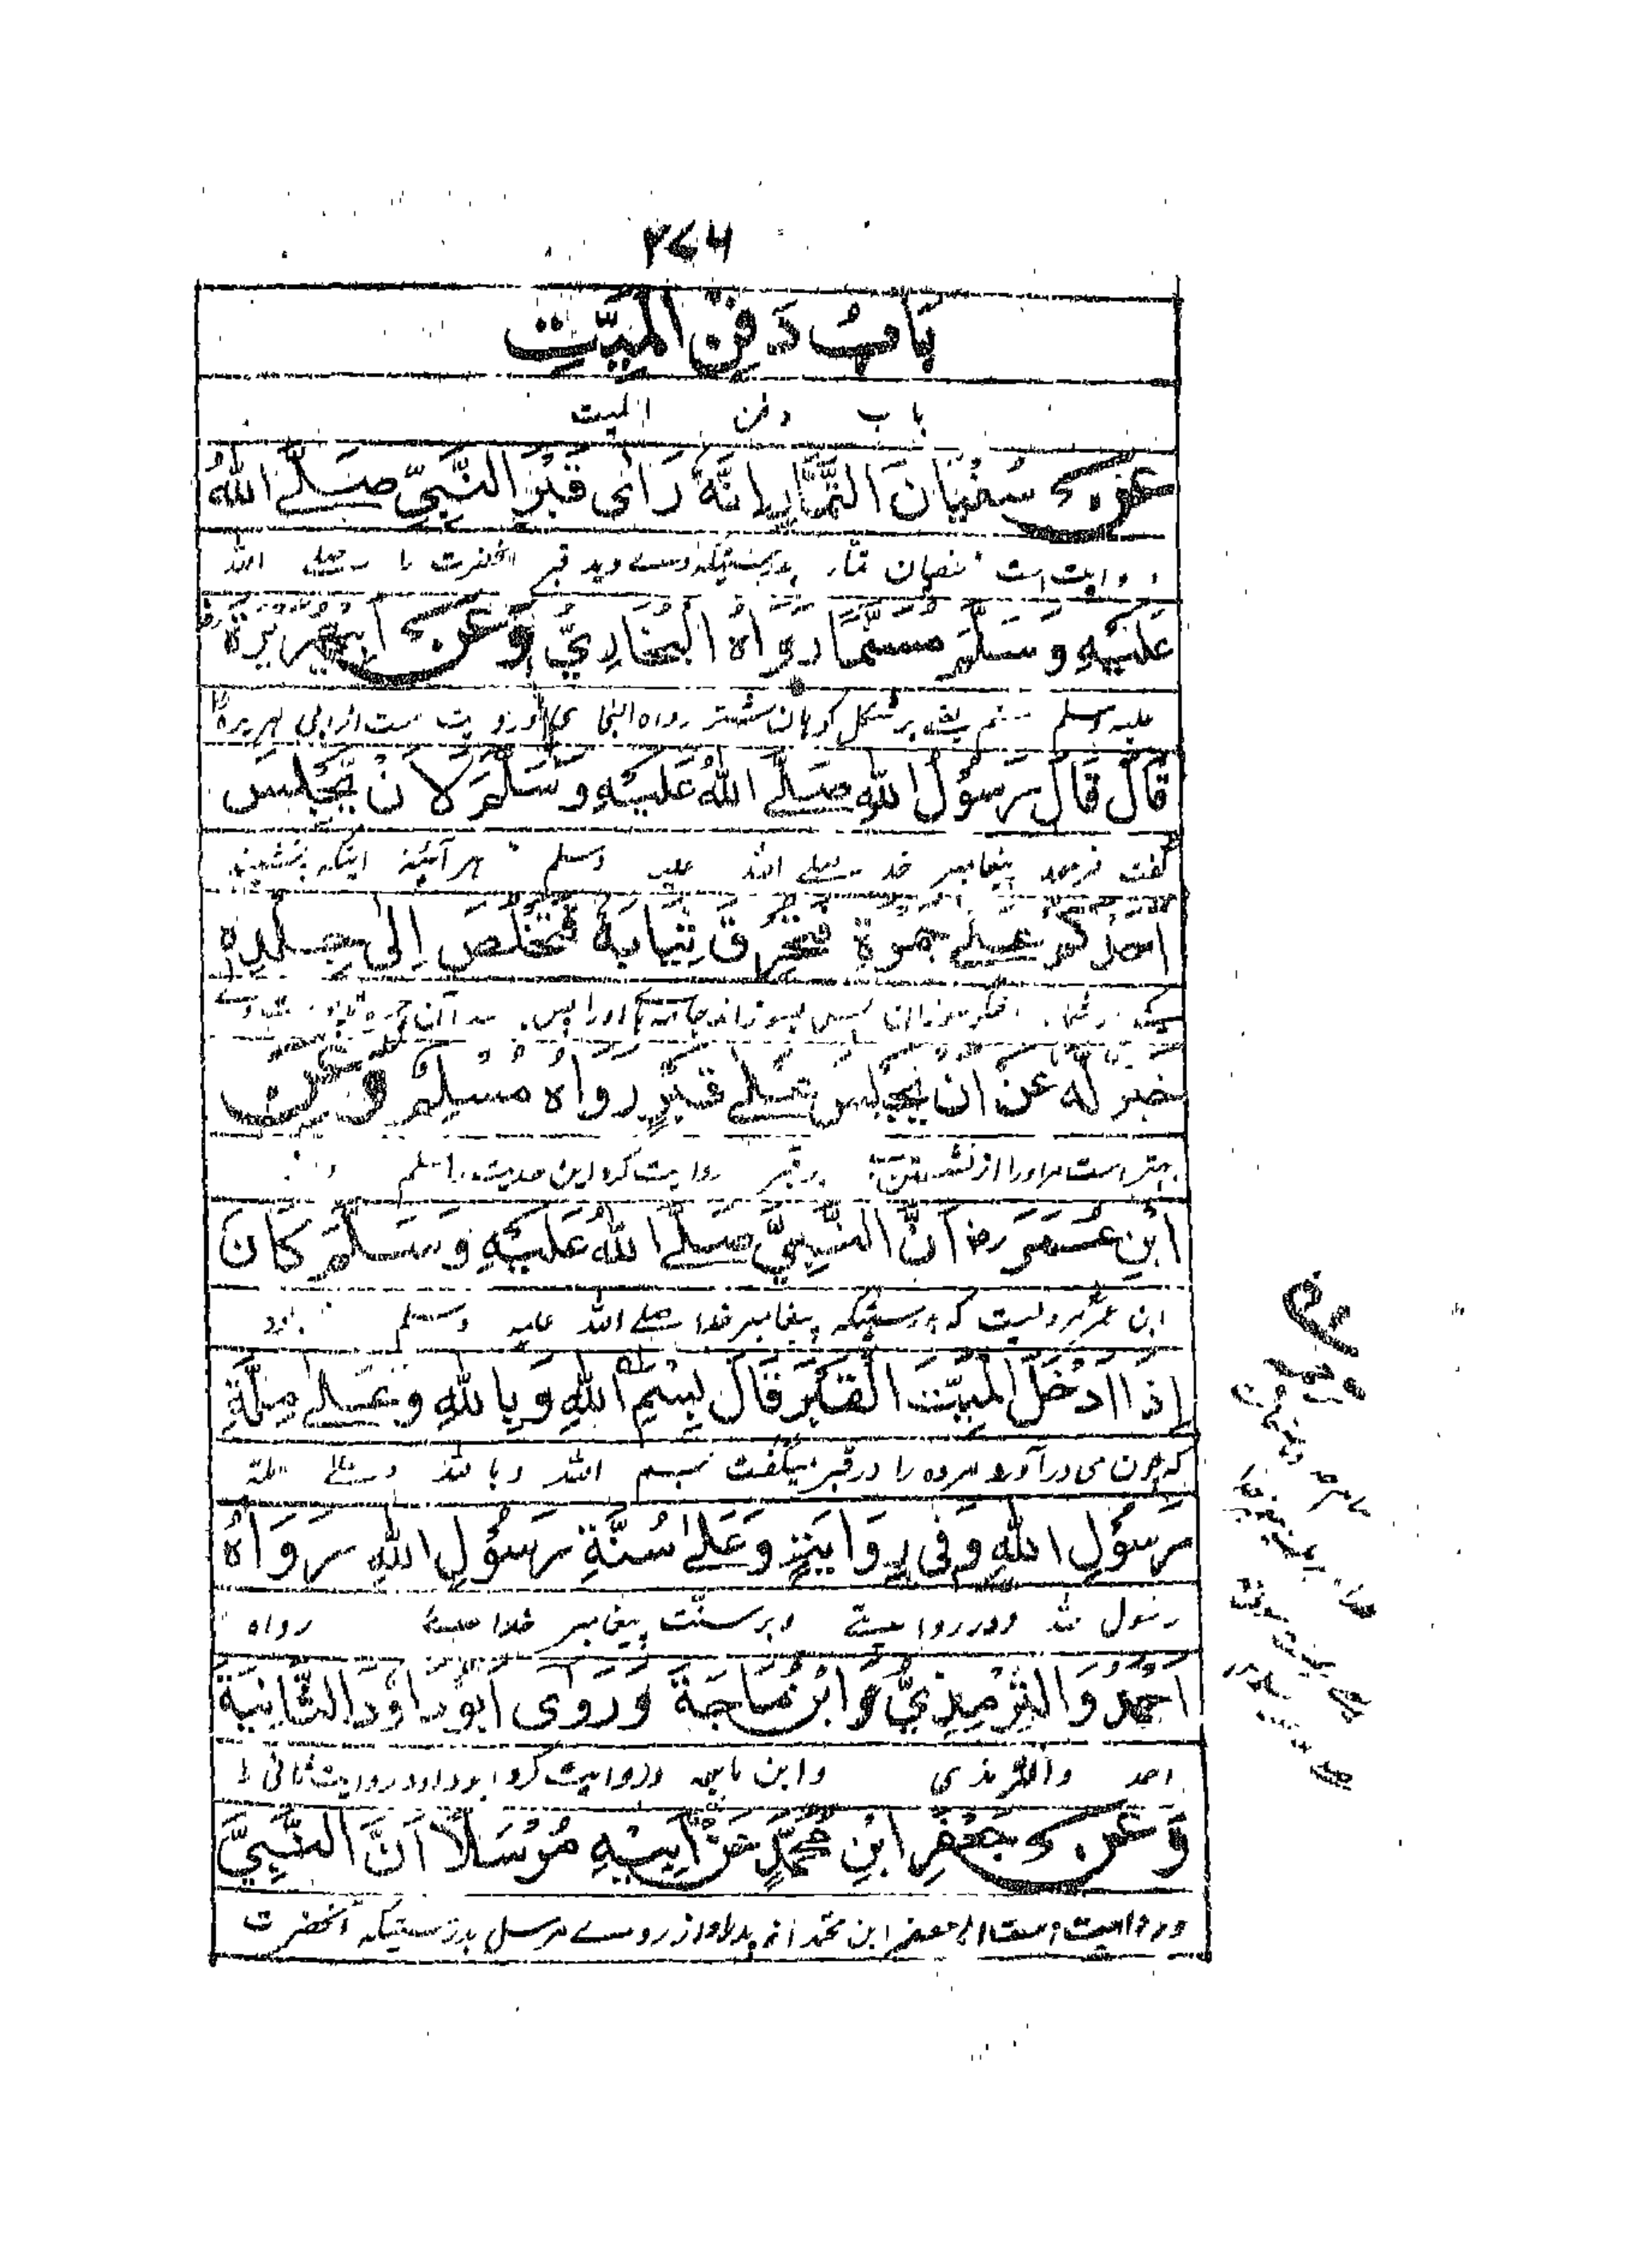 ۲۷۶
بَابُ دَفْنِ الْمَيِّتِ
باب دفن المیت
عَنْ سُفْيَانَ التَّمَّارِ اِنَّهٗ رَاٰى قَبْرَ النَّبِيِّ صَلَّے اللهُ
روایت است سفیان تمار بدرستیکه وے دید قبر آنحضرت را صلے الله
عَلَيْهِ وَسَلَّمَ مُسَنَّمًا رَوَاهُ الْبُخَارِيُّ وَعَنْ اَبِيْ هُرَيْرَةَ رض
علیه وسلم مسنم یعنے بر شکل کوهان شتر رواه البخاری وروایت است از ابی هریره
قَالَ قَالَ رَسُوْلُ اللهِ صَلَّے اللهُ عَلَيْهِ وَسَلَّمَ لَاَنْ يَّجْلِسَ
گفت فرمود پیغامبر خدا صلے الله علیه وسلم هر آئینه اینکه بنشیند
اَحَدُكُمْ عَلٰے جَمْرَةٍ فَتُحْرِقَ ثِيَابَهٗ فَتَخْلُصَ اِلٰى جِلْدِهٖ
یکے از شما بر
خَيْرٌ لَهٗ عَنْ اَنْ يَّجْلِسَ عَلٰے قَبْرٍ رَوَاهُ مُسْلِمٌ وَعَنْ
بهتر است مر اورا از نشستن بر قبر روایت کرد این حدیث را مسلم و
اِبْنِ عُمَرَ رض اَنَّ النَّبِيَّ صَلَّے اللهُ عَلَيْهِ وَسَلَّمَ كَانَ
ابن عمر مرویست که بدرستیکه پیغامبر خدا صلے الله علیه وسلم بود
اِذَا اَدْخَلَ الْمَيِّتَ الْقَبْرَ قَالَ بِسْمِ اللهِ وَبِاللهِ وَعَلٰے مِلَّةِ
که چون می درآورد مرده را در قبر میگفت بسم الله وبالله وعلے ملة
رَسُوْلِ اللهِ وَفِى رِوَايَةٍ وَعَلٰے سُنَّةِ رَسُوْلِ اللهِ رَوَاهُ
رسول الله ودر روایتے وبر سنّت پیغامبر خدا رواه
اَحْمَدُ وَالتِّرْمِذِيُّ وَابْنُ مَاجَةَ وَرَوٰى اَبُوْ دَاوٗدَ الثَّانِيَةَ
احمد والترمذی وابن ماجه وروایت کرد ابو داود روایت ثانی را
وَعَنْ جَعْفَرِ ابْنِ مُحَمَّدٍ عَنْ اَبِيْهِ مُرْسَلًا اَنَّ النَّبِيَّ
وروایت است از جعفر ابن محمد از پدر او از روے مرسل بدرستیکه آنحضرت